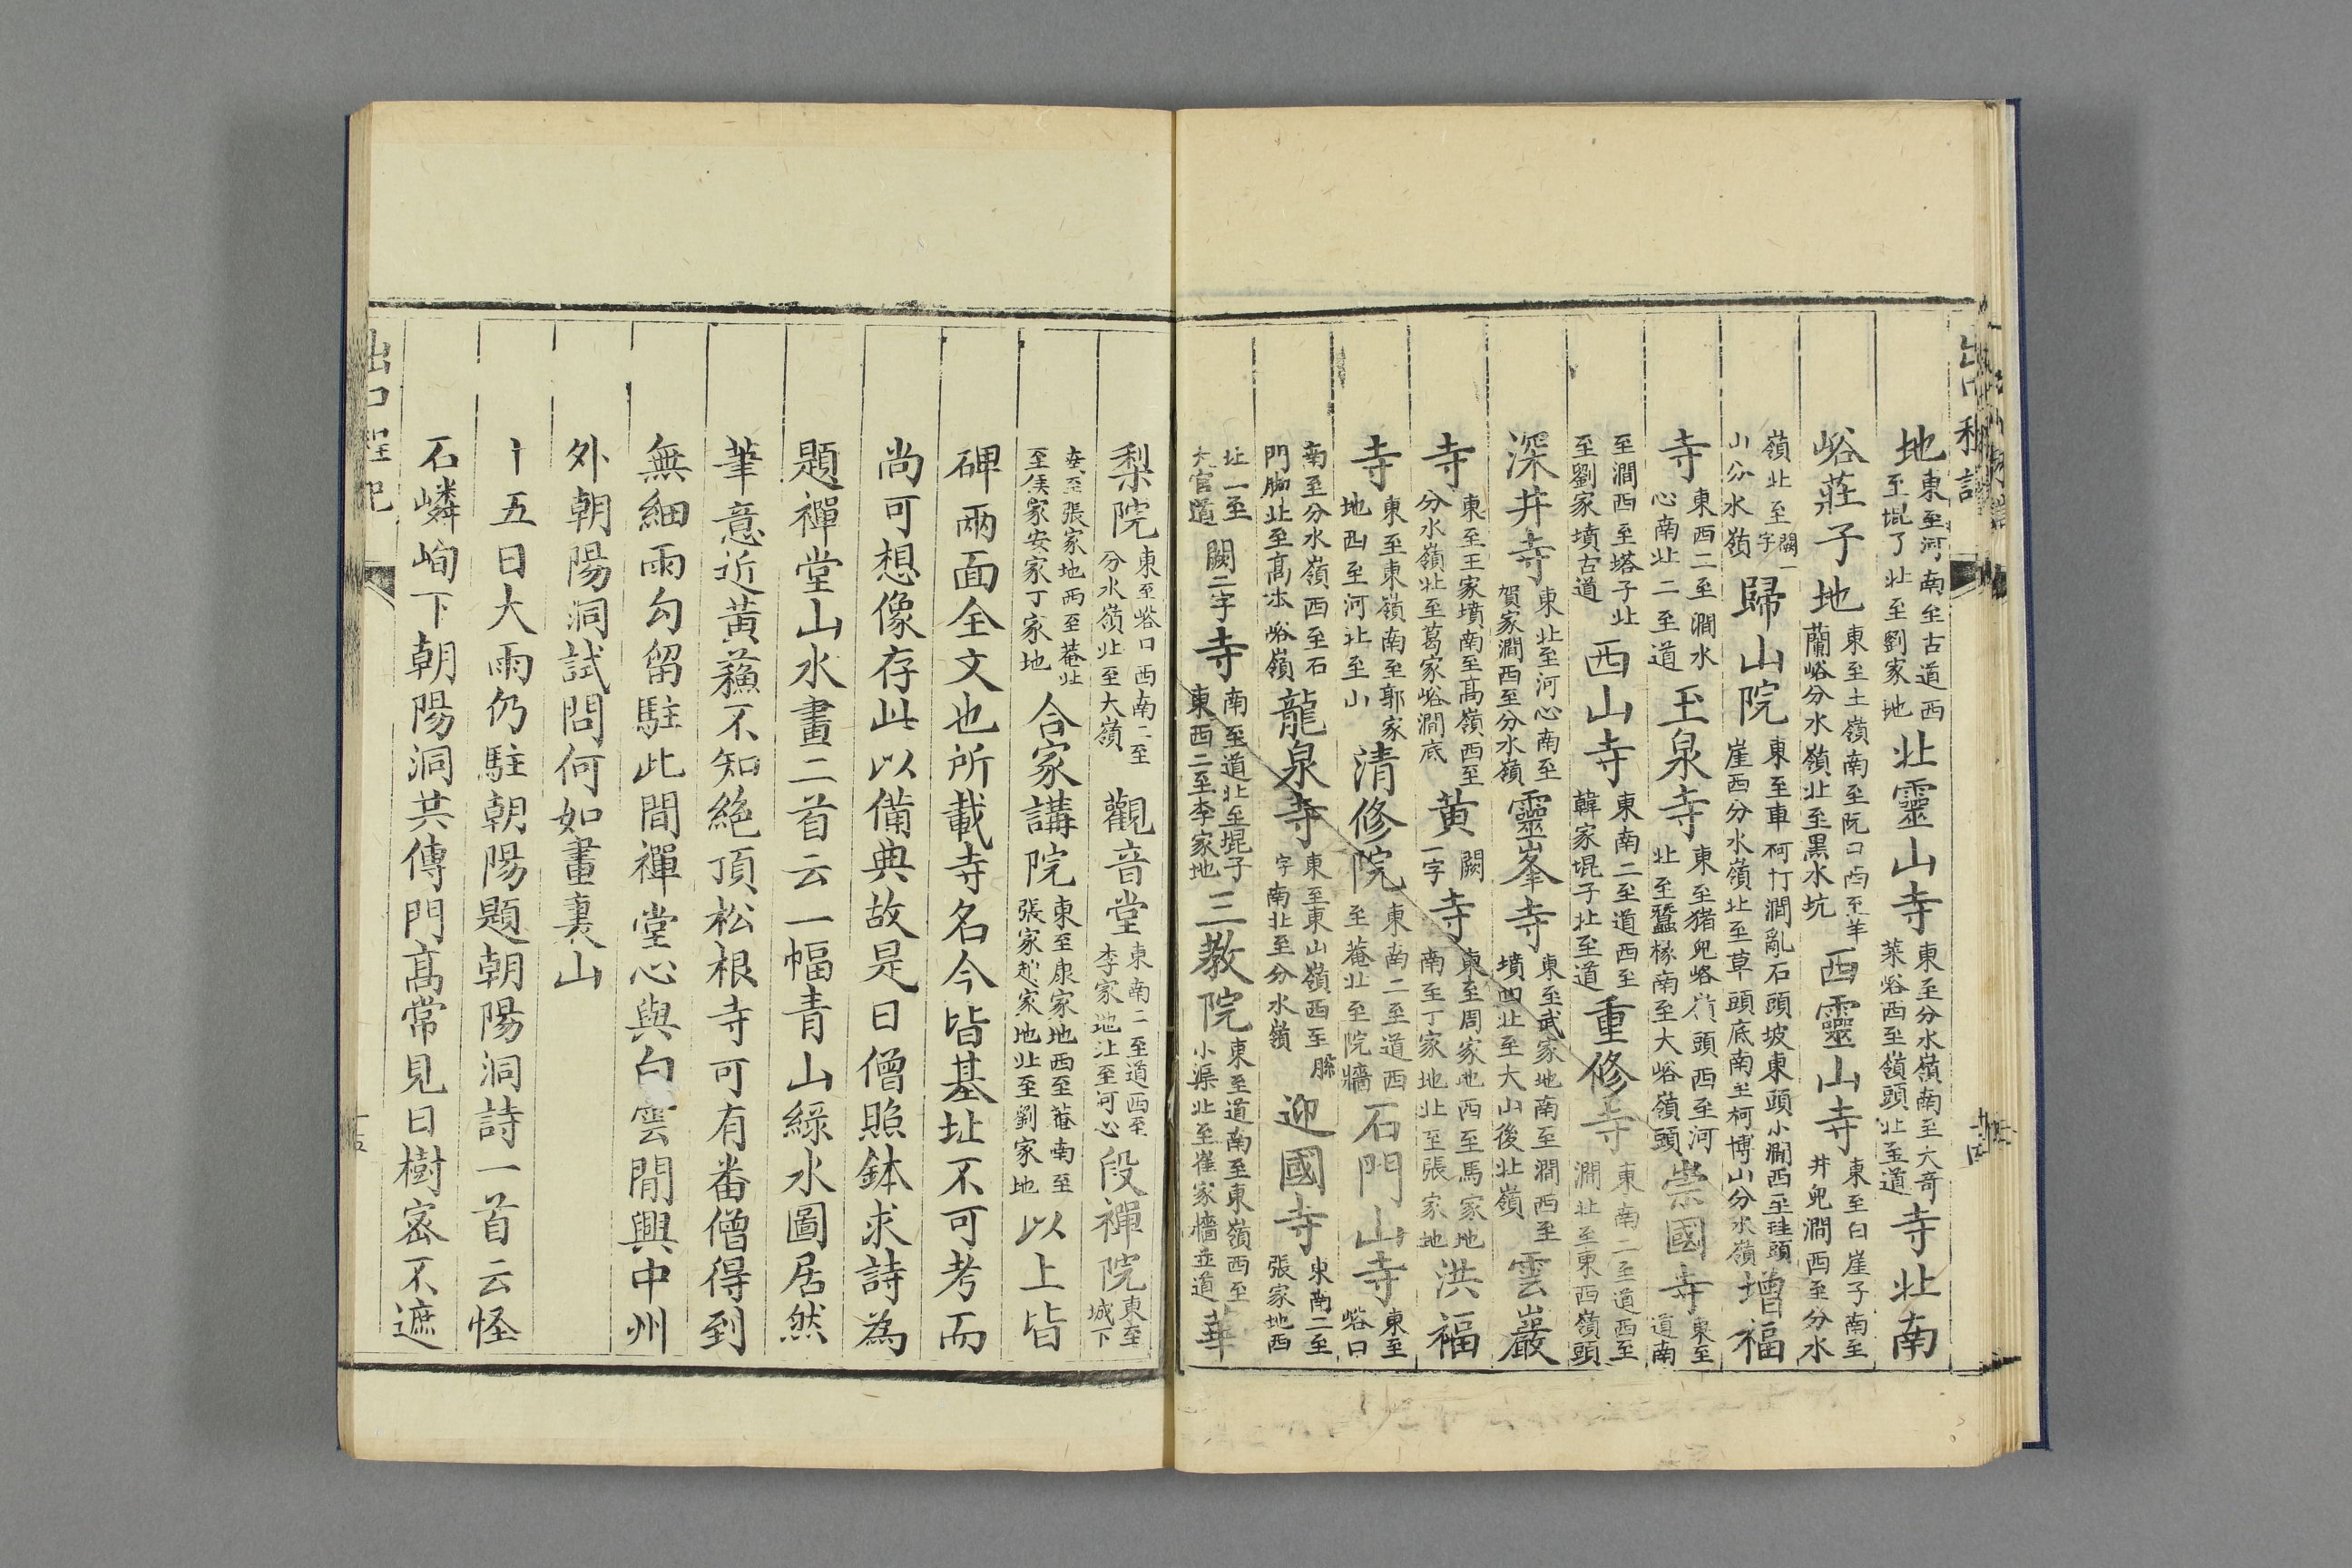 地東至河南至古道西至堒了北至劉家地北靈山寺東至分水嶺南至大奇萊峪西至嶺頭北至道寺北南
峪莊子地東至土嶺南至阮口西至羊蘭峪分水嶺北至黑水坑西靈山寺東至白崖子南至井兒澗西至分水
嶺北至闕一字山分水嶺歸山院東至車軻打澗亂石頭坡東頭小澗西至珪頭崖西分水嶺北至草頭底南至柯博山分水嶺增福
寺東西二至澗水心南北二至道玉泉寺東至猪兒峪嶺頭西至河北至蠶椽南至大峪嶺頭崇國寺東至道南
至澗西至塔子北至劉家墳古道西山寺東南二至道西至韓家堒子北至道重修寺東南二至道西至澗北至東西嶺頭
深井寺東北至河心南至賀家澗西至分水嶺靈峯寺東至武家地南至澗西至墳西北至大山後北嶺雲巖
寺東至王家墳南至高嶺西至分水嶺北至葛家峪澗底黄闕一字寺東至周家地西至馬家地南至丁家地北至張家地洪福
寺東至東嶺南至郭家地西至河北至山清修院東南二至道西至菴北至院牆石門山寺東至峪口
南至分水嶺西至石門脚北至高氶峪嶺龍泉寺東至東山嶺西至腦字南北至分水嶺迎國寺東南二至張家地西
北一至大官道闕二字寺南至道北至堒子東西二至李家地三教院東至道南至東嶺西至小渠北至崔家牆並道華
梨院東至峪口西南二至分水嶺北至大嶺觀音堂東南二至道西至李家地北至河心段禪院東至城下
至張家地西至菴北至侯家安家丁家地合家講院東至康家地西至菴南至張家趙家地北至劉家地以上皆
碑兩面全文也所載寺名今皆基址不可考而
尚可想像存此以備典故是日僧照鉢求詩為
題禪堂山水畫二首云一幅青山綠水圖居然
筆意近黃蘓不知絶頂松根寺可有番僧得到
無細雨勾留駐此間禪堂心與白雲閒興中州
外朝陽洞試問何如畫裏山
十五日大雨仍駐朝陽題朝陽洞詩一首云怪
石嶙峋下朝陽洞共傳門高常見日樹密不遮
出口程記